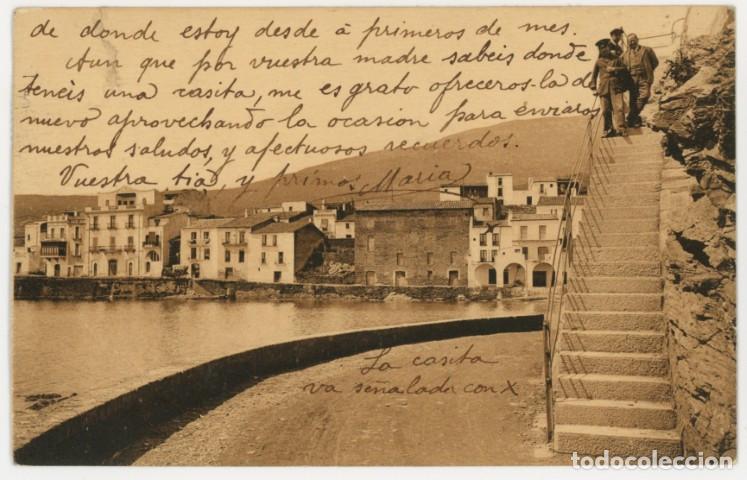 de donde estoy desde á primeros de mes.
Aun que por vuestra madre sabeis donde
teneis una casita, me es grato ofreceros-la de
nuevo aprovechando la ocasion para énviaros
nuestros saludos, y afectuosos recuerdos.
Vuestra tiá, y primos Maria
La casita
va señalada con X
todocoleccion.net